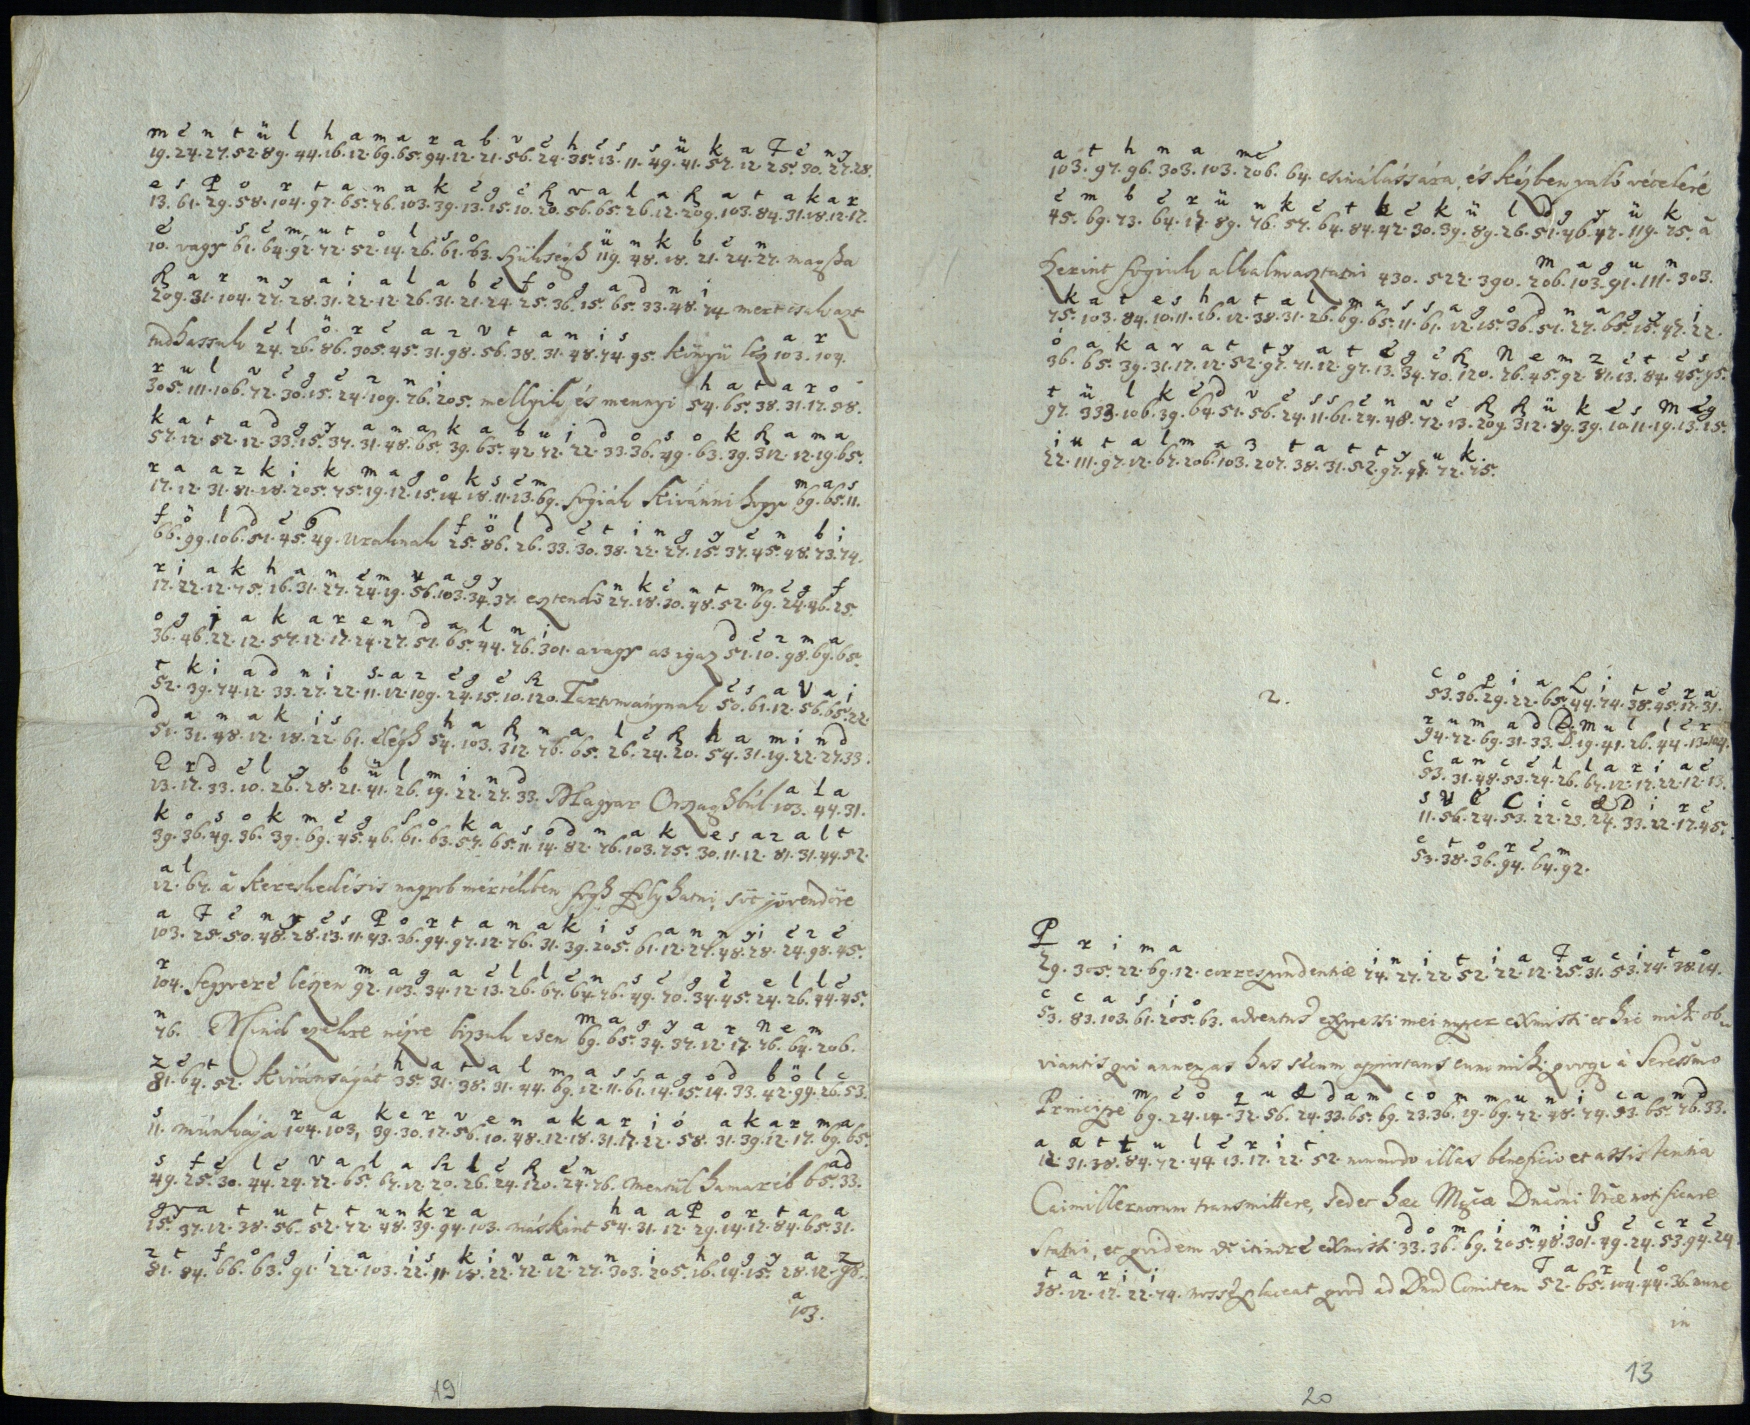 m e n t ü l h a m a r a b v e h e s s ü k a F e n y
19. 24. 27. 52. 89. 44. 16. 12. 69. 65. 94. 12. 21. 56. 24. 35. 13. 11. 49. 41. 57. 12. 25. 30. 27. 28.
e s P o r t a n a k e g e ß v a l a ß a t a k a r
13. 61. 29. 58. 104. 97. 65. 76. 103. 39. 13. 15. 10. 20. 56. 65. 26. 12. 209. 103. 84. 31. 18. 12. 17.
e s e m u t o l s o ü n k b e n
10. vagy 61. 64. 92. 72. 52. 14. 26. 61. 63. Szükségh 119. 48. 18. 21. 24. 27. magha
ß a r n y a i a l a b e f o g a d n i
209. 31. 104. 27. 28. 31. 22. 12. 26. 31. 21. 24. 25. 36. 15. 65. 33. 48. 74. mert csak azt
e l ö r e a z v t a n i s a r
tudhassuk 24. 26. 86. 305. 45. 31. 98. 56. 38. 31. 48. 74. 95. könyü léz 103. 104.
r u l v e g e z n i h a t a r o
305. 111. 106. 72. 30. 15. 24. 109. 76. 205. mellyik és mennyi 54. 65. 38. 31. 17. 58.
k a t a d g y a n a k a b u j d o s o k ß a m a
57. 12. 52. 12. 33. 15. 37. 31. 48. 65. 39. 65. 42. 72. 22. 33. 36. 49. 63. 39. 312. 12. 19. 65.
r a a z k i k m a g o k s e m m a s
17. 12. 31. 81. 18. 205. 75. 19. 12. 15. 14. 18. 11. 23. 69. fogják kivánni hogy 69. 65. 11.
f ö l d e b f ö l d e t i n g y e n b i
66. 99. 106. 51. 45. 49. uraknak 25. 86. 26. 33. 30. 38. 22. 27. 15. 37. 45. 48. 73. 74.
r i a k h a n e m v a g y n k e n t m e g f
17. 22. 12. 75. 16. 31. 27. 24. 19. 56. 103. 34. 37. eztendő 27. 18. 30. 48. 52. 69. 24. 46. 25.
o g j a k a r e n d a l n i d e z m a
36. 46. 22. 12. 57. 12. 17. 24. 27. 51. 65. 44. 76. 301. avagy az igaz 51. 10. 98. 69. 65.
t k i a d n i s a z e g e ß e s a v a i
52. 39. 74. 12. 33. 27. 22. 11. 12. 109. 24. 15. 10. 120. Tartománynak 50. 61. 12. 56. 65. 22.
d a n a k i s h a ß n a l e ß h a m i n d
51. 31. 48. 12. 18. 22. 61. elégh 54. 103. 312. 76. 65. 26. 24. 20. 54. 31. 19. 22. 27. 33.
E r d e l y b ü l m i n d a l a
23. 17. 33. 10. 26. 28. 21. 41. 26. 19. 22. 27. 33. Magyar Orszagbúl 103. 44. 31.
k o s o k m e g s o k a s o d n a k e s a z a l t
39. 36. 49. 36. 39. 69. 45. 46. 61. 63. 57. 65. 11. 14. 82. 76. 103. 75. 30. 11. 12. 81. 31. 44. 52.
a l
12. 67. a kereskedésis nagyob mértékben fogh folyhatni, sőt jövendőre
a F e n y e s P o r t a n a k i s a n n y i e z e
103. 25. 50. 48. 28. 13. 11. 43. 36. 94. 97. 12. 76. 31. 39. 205. 61. 12. 27. 48. 28. 24. 98. 45.
r m a g a e l l e n s e g e e l l e
104. fegyvere lészen 92. 103. 34. 12. 13. 26. 67. 64. 76. 49. 70. 34. 45. 24. 26. 44. 45.
n m a g y a r N e m
76. Minek ezekre nézve bizzuk ezen 69. 65. 34. 37. 12. 17. 76. 64. 206.
z e t h a t a l m a s s a g o d b ö l c
81. 64. 52. kivánságát 35. 31. 38. 31. 44. 69. 12. 11. 61. 14. 15. 14. 33. 42. 99. 26. 53.
s r a k e r v e n a k a r i ó a k a r m a
11. munkája 104. 103, 39. 30. 17. 56. 10. 48. 12. 18. 31. 17. 22. 58. 31. 39. 12. 17. 69. 65.
s f e l e v a l a ß l e ß e n a d
49. 25. 30. 44. 24. 72. 65. 67. 12. 20. 26. 24. 120. 24. 76. mentül hamaréb 65. 33.
g y a t u t t u n k r a h a a P o r t a a
15. 37. 12. 38. 56. 52. 72. 48. 39. 94. 103. másként 54. 31. 12. 29. 14. 17. 84. 65. 31.
z t f o g j a i s k i v a n n i h o g y a z
81. 84. 66. 63. 91. 22. 103. 22. 11. 18. 22. 72. 12. 27. 303. 205. 16. 14. 15. 28. 12. 98.
a
103.
19
a t h n a m e
103. 97. 96. 303. 103. 206. 64. csinálására, és kézben való vételére
e m b e r ü n k e t k e k ü l d g y ü k
45. 69. 73. 64. 17. 89. 76. 57. 64. 84. 42. 30. 39. 89. 26. 51. 46. 42. 119. 75. a
m a g u n
szerint fogiuk alkalmaztatni 430. 522. 390. 206. 103. 91. 111. 303.
k a t e s h a t a l m a s s a g o d n a g y j
75. 103. 84. 10. 11. 16. 12. 38. 31. 26. 69. 65. 11. 61. 12. 15. 36. 51. 27. 65. 15. 47. 22.
ó a k a r a t t y a t e g e ß N e m z e t e s
36. 65. 39. 31. 17. 12. 52. 97. 71. 12. 97. 13. 34. 70. 120. 76. 45. 92. 81. 13. 84. 45. 95.
t ü l k e d v e s s e n v e ß ß ü k e s m e g
97. 333. 106. 39. 64. 51. 56. 24. 11. 61. 24. 48. 72. 13. 209. 312. 89. 39. 10. 11. 19. 13. 15.
i u t a l m a z t a t t y u k
22. 111. 97. 12. 67. 206. 103. 207. 38. 31. 52. 97. 47. 72. 75.
2.
c o p i a L i t e r a
53. 36. 29. 22. 65. 44. 74. 38. 45. 17. 31.
r u m a d D. m u l l e r
94. 72. 69. 31. 33. D. 19. 41. 26. 44. 13. 104.
c a n c e l l a r i a e
53. 31. 48. 53. 24. 26. 67. 12. 17. 22. 12. 13.
s v e c i c æ D i r e
11. 56. 24. 53. 22. 23. 24. 33. 22. 17. 45.
c t o r e m
53. 38. 36. 94. 64. 92.
P r i m a i n i t i a F a c i t o
29. 305. 22. 69. 12. correspondentiæ 74. 27. 22. 52. 22. 12. 25. 31. 53. 74. 38. 14.
c c a s i o
53. 83. 103. 61. 205. 63. adventus expressi mei nuper exmissi et hic mihi ob-
viantis qui annexas has secum apportans cum mihi porro à Serssmo
m e o q u æ d a m c o m m u n i c a n d
Principe 69. 24. 14. 32. 56. 24. 33. 65. 69. 23. 36. 19. 69. 72. 48. 74. 93. 65. 76. 33.
a a t t u l e r i t
12. 31. 38. 84. 72. 44. 13. 17. 22. 52. nonmodo illas beneficio et assistentia
Caimillernorum transmittere, sed et hæc Mgcæ Dnaoni Vræ notificare
d o m i n i S e c r e
statui, et quidem de itinere exmissi 33. 36. 69. 205. 48. 301. 49. 24. 53. 94. 24.
t a r i i T a r l o
38. 12. 17. 22. 74. nosse placeat quod ad Dnd Comitem 52. 65. 104. 44. 36. nunc
in
20
13